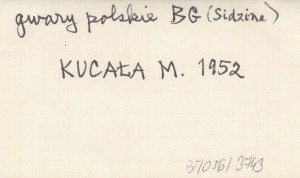 gwary polskie BG (Sidzina)
KUCAŁA M. 1952
BF/056/3743